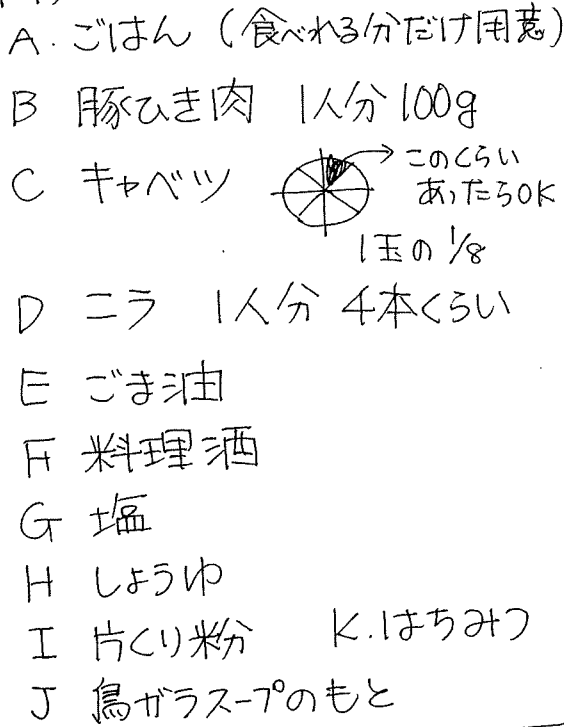 A. ごはん (食べれる分だけ用意)
B 豚ひき肉 1人分 100g
C キャベツ
このくらい
あったらOK
1玉の 1/8
D ニラ 1人分 4本くらい
E ごま油
F 料理酒
G 塩
H しょうゆ
I 片くり粉
K.はちみつ
J 鳥ガラスープのもと